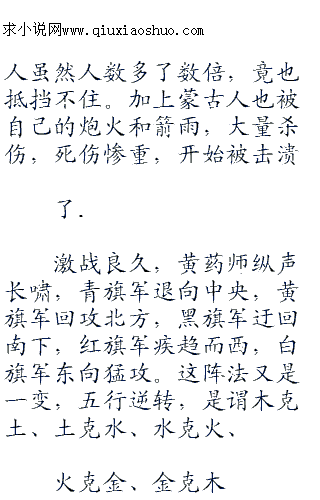 求小说网www.qiuxiaoshuo.com
人虽然人数多了数倍，竟也
抵挡不住。加上蒙古人也被
自己的炮火和箭雨，大量杀
伤，死伤惨重，开始被击溃
了.
激战良久，黄药师纵声
长啸，青旗军退向中央，黄
旗军回攻北方，黑旗军迂回
南下，红旗军疾趋而西，白
旗军东向猛攻。这阵法又是
一变，五行逆转，是谓木克
土、土克水、水克火、
火克金、金克木